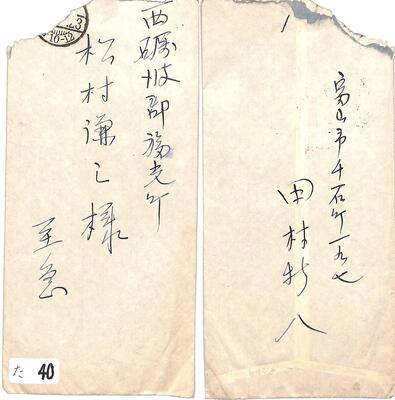 23
10-12
西礪波郡福光町
松村謙三様
至急
た 40
富山市千石町一九七
田村 八